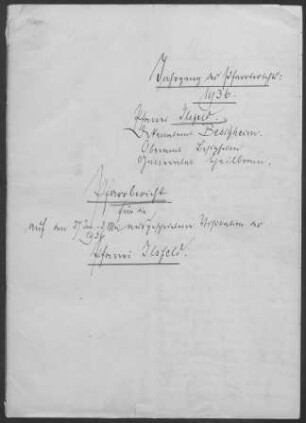 Jahrgang des Pfarrberichts:
1936.
Pfarrei Ilsfeld.
Dekanatamt Besigheim.
Oberamt Besigheim
Generalat Heilbronn.
Pfarrbericht
für die
auf den 27. ausgeschriebene Visitation der
1936
Pfarrei Ilsfeld.